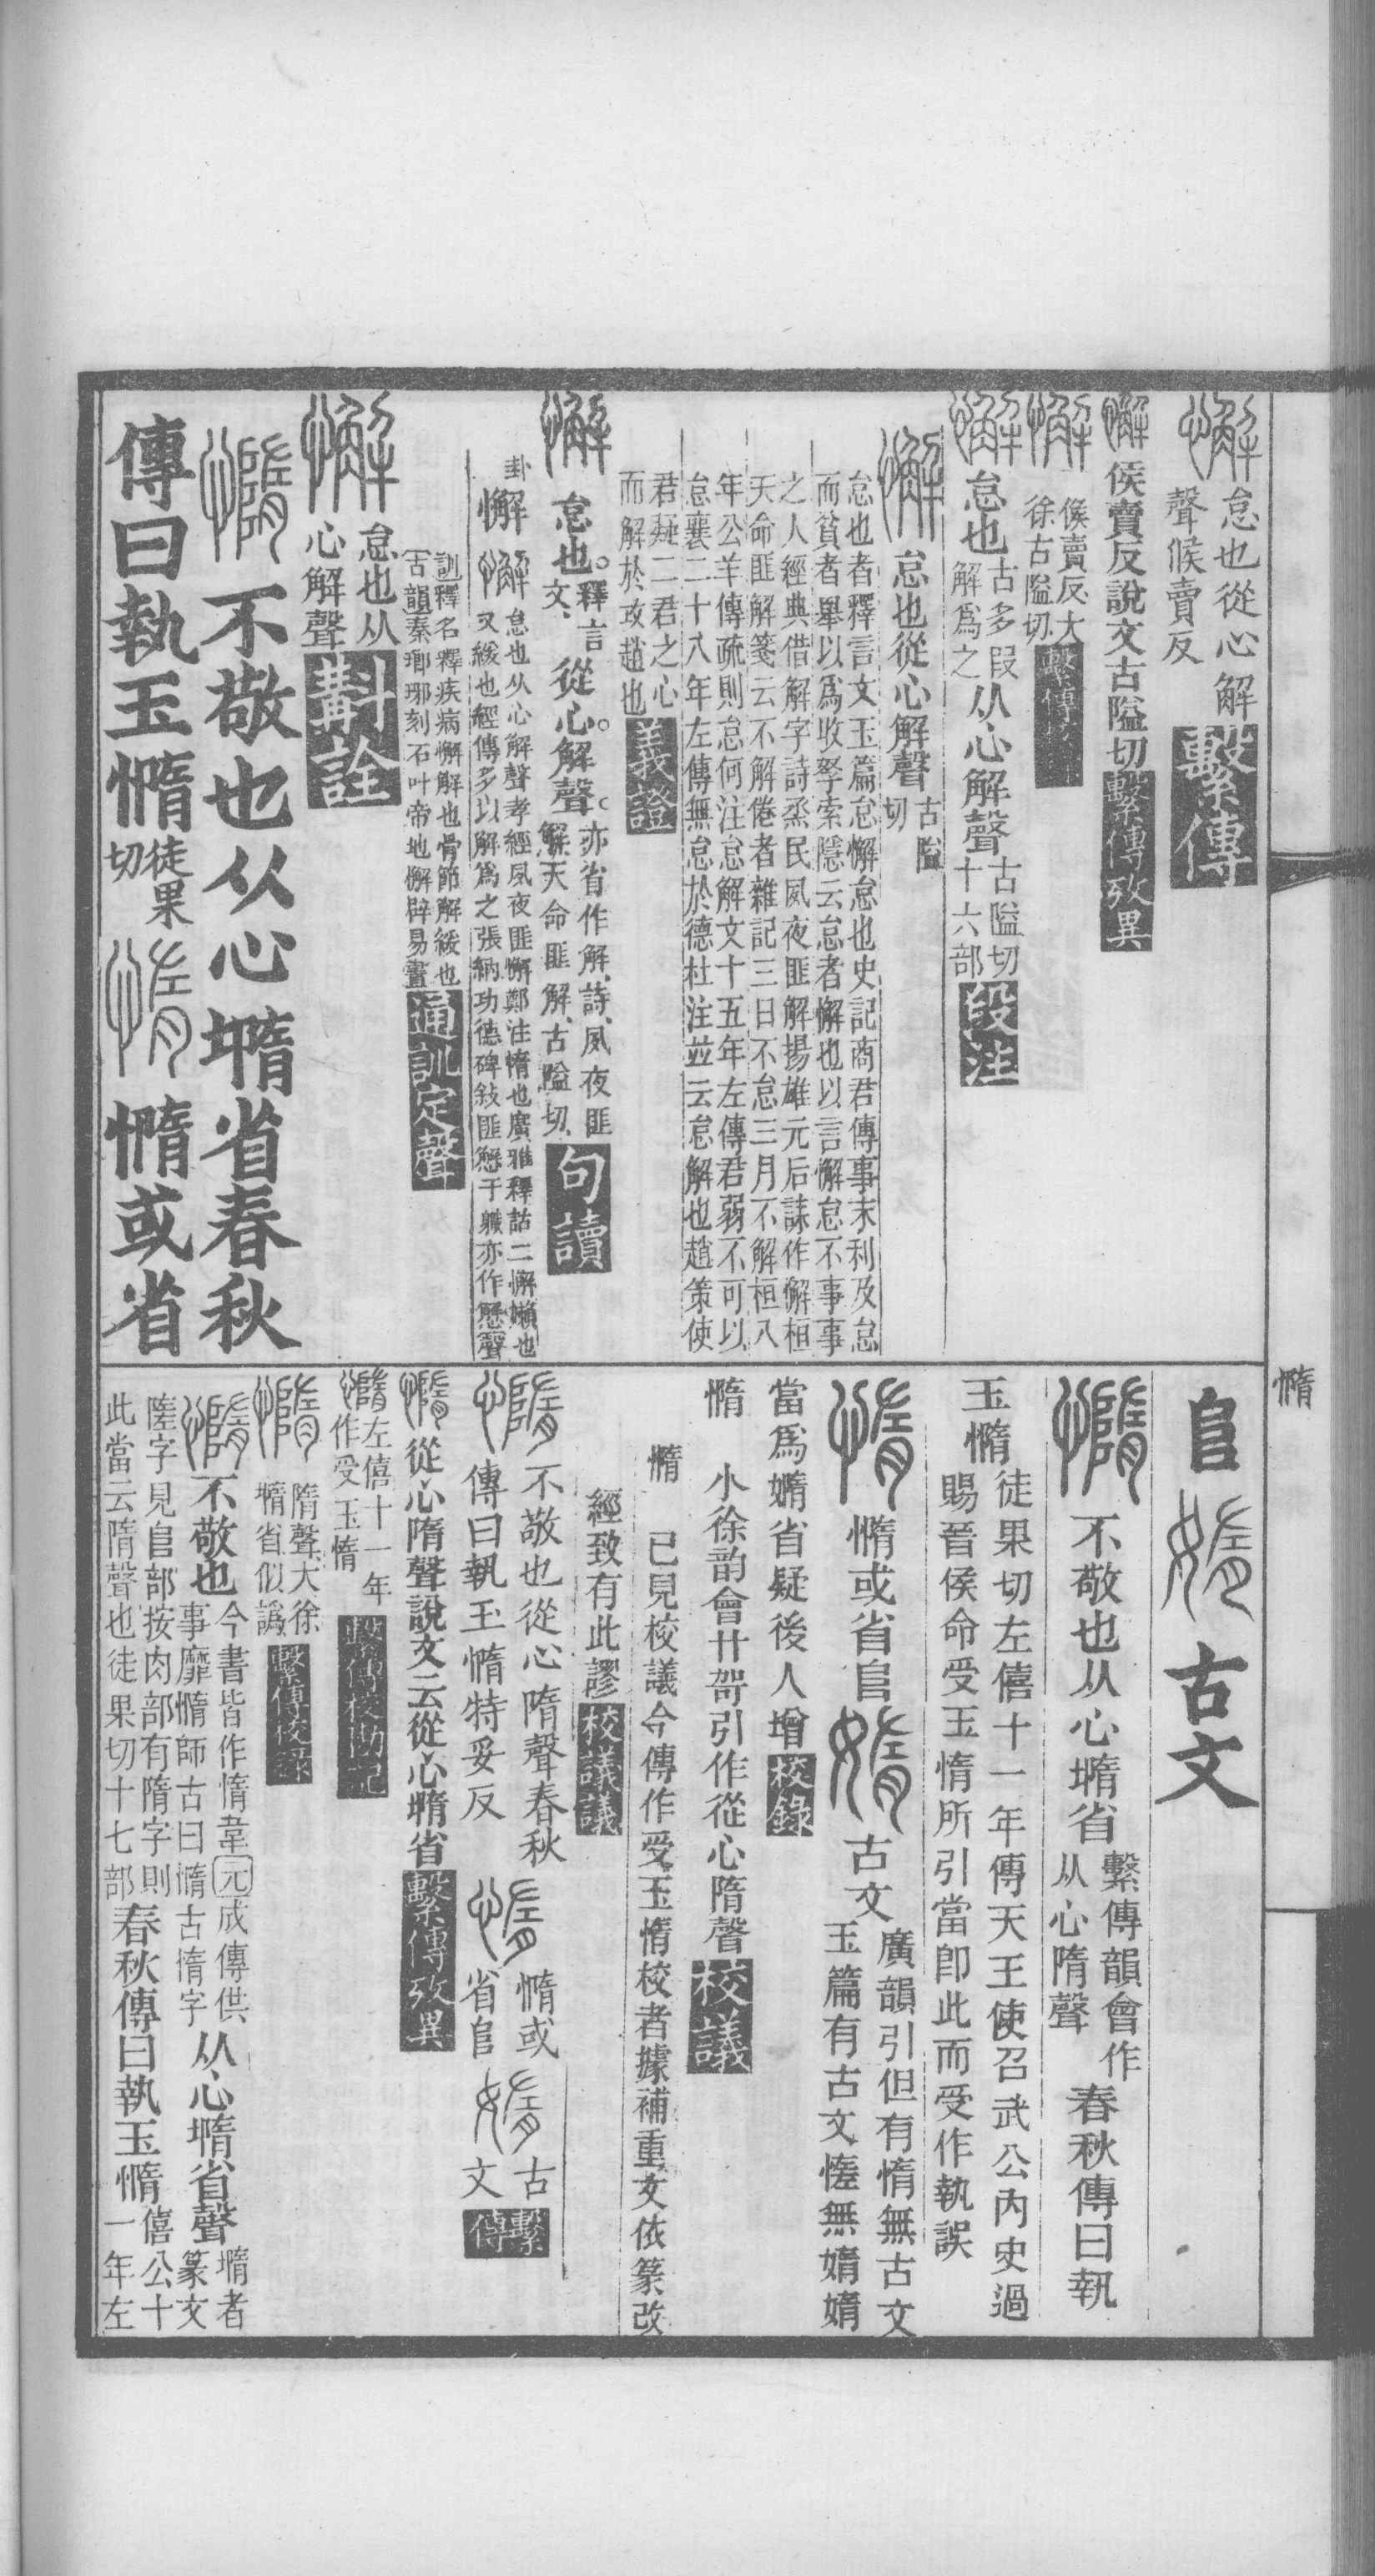 懈怠也從心解
聲候賣反繫傳
懈侯賣反說文古隘切繫傳攷異
懈候賣反大
徐古隘切繫傳校
懈怠也古多叚
解爲之从心解聲古隘切
十六部段注
懈怠也從心解聲古隘
切
怠也者釋言文玉篇怠懈怠也史記商君傳事末利及怠
而貧者舉以爲收孥索隱云怠者懈也以言懈怠不事事
之人經典借解字詩烝民夙夜匪解揚雄元后誄作懈桓
天命匪解箋云不解倦者雜記三日不怠三月不解桓八
年公羊傳疏則怠何注怠解文十五年左傳君弱不可以
怠襄二十八年左傳無怠於德杜注並云怠解也趙策使
君疑二君之心
而解於攻趙也義證
懈怠也。釋言
文、從心。解聲。亦省作解、詩、夙夜匪
解、天命匪解、古隘切、句讀
卦懈懈怠也从心解聲孝經夙夜匪懈鄭注惰也廣雅釋詁二懈嬾也
又緩也經傳多以解爲之張納功德碑敍匪懸于職亦作懸聲
訓釋名釋疾病懈解也骨節解緩也
古韻秦琅邪刻石叶帝地懈辟易畫通訓定聲
懈怠也从
心解聲斠詮
憜不敬也从心𡐦省春秋
傳曰執玉憜徒果
切惰憜或省
𨸏媠古文
憜不敬也从心𡐦省繫傳韻會作
从心隋聲春秋傳曰執
玉憜徒果切左僖十一年傳天王使召武公內史過
賜晉侯命受玉惰所引當即此而受作執誤
惰憜或省𨸏媠古文廣韻引但有惰無古文
玉篇有古文㥩無媠媠
當爲嫷省疑後人增校錄
憜小徐韵會廿哿引作從心隋聲校議
憜已見校議今傳作受玉惰校者據補重文依篆改
經致有此謬校議議
憜不敬也從心隋聲春秋
傳曰執玉憜特妥反惰憜或
省𨸏媠古
文繫傳
憜從心隋聲說文云從心𡐦省繫傳攷異
憜左僖十一年
作受玉惰繫傳校勘記
憜隋聲大徐
𡐦省似譌繫傳校錄
憜不敬也今書皆作惰韋元成傳供
事靡憜師古曰憜古惰字从心𡐦省聲𡐦者
篆文
陸字見𨸏部按肉部有隋字則
此當云隋聲也徒果切十七部春秋傳曰執玉憜僖公十
一年左
憜